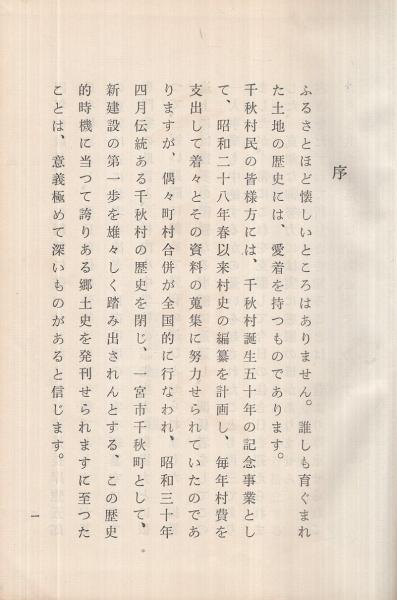 序
ふるさとほど懐しいところはありません。誰しも育ぐまれ
た土地の歴史には、愛着を持つものであります。
千秋村民の皆様方には、千秋村誕生五十年の記念事業とし
て、昭和二十八年春以来村史の編纂を計画し、毎年村費を
支出して着々とその資料の蒐集に努力せられていたのであ
りますが、偶々町村合併が全国的に行なわれ、昭和三十年
四月伝統ある千秋村の歴史を閉じ、一宮市千秋町として、
新建設の第一歩を雄々しく踏み出されんとする、この歴史
的時機に当つて誇りある郷土史を発刊せられますに至つた
ことは、意義極めて深いものがあると信じます。
一